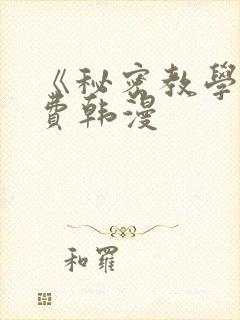 《秘密教學
費韩漫
和羅